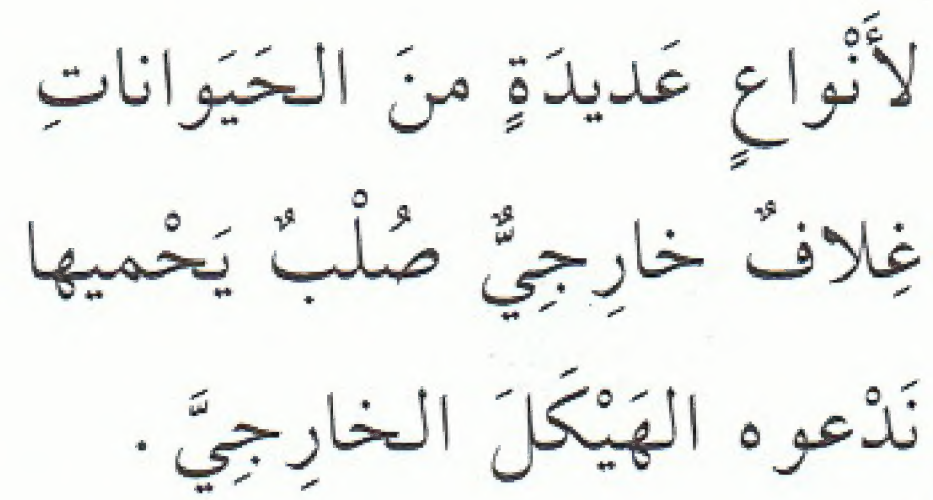 لأَنْواعٍ عَديدَةٍ منَ الحَيَواناتِ
غِلافٌ خارِجِيٌّ صُلْبٌ يَحْميها
نَدْعوه الهَيْكَلَ الخارِجِيَّ .